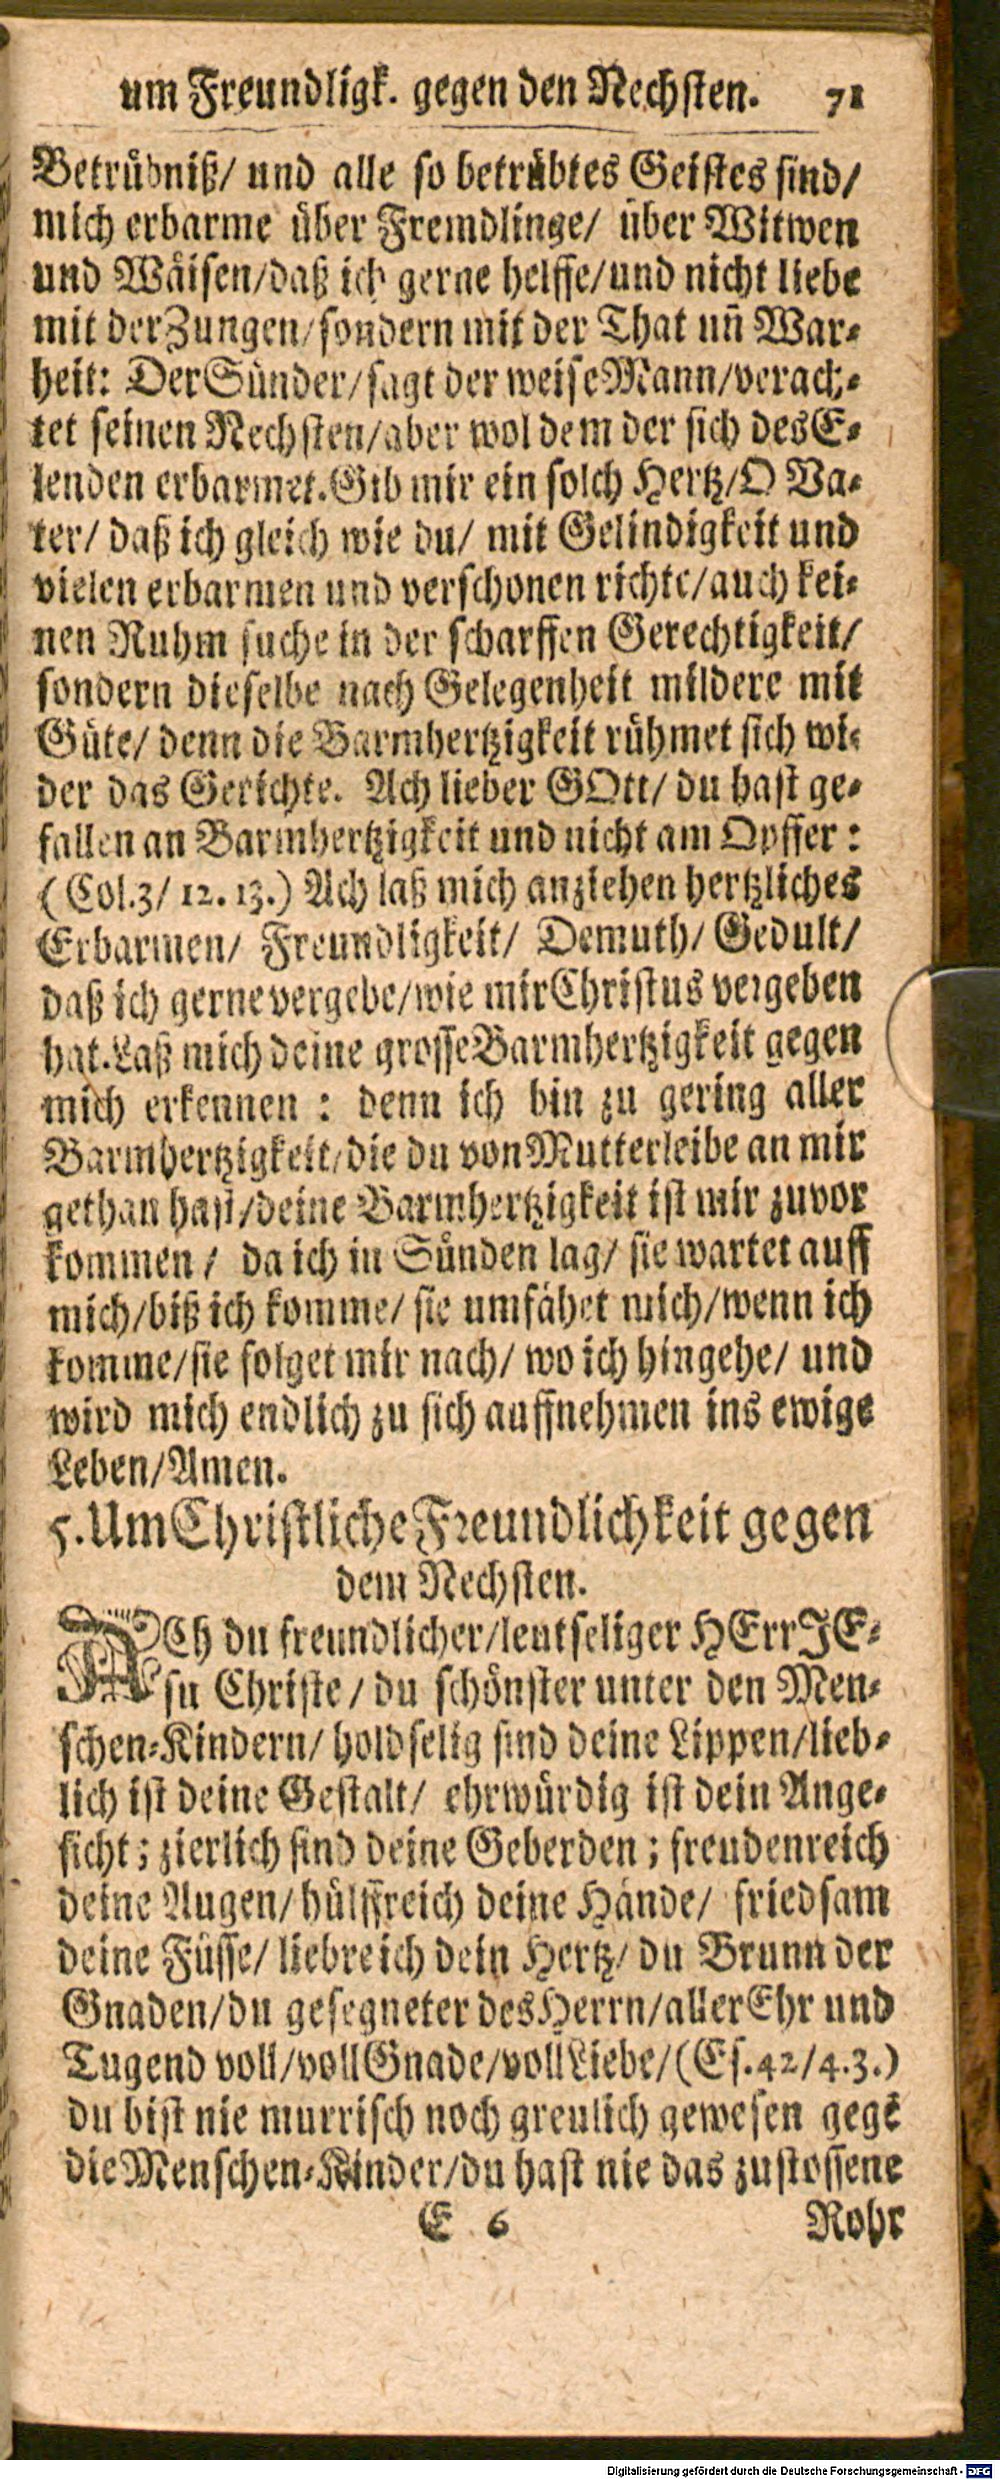 um Freundligk. gegen den Nechsten. 71
Betrübniß/ und alle so betrübtes Geistes sind/
mich erbarme über Fremdlinge/ über Witwen
und Wäisen/daß ich gerne helffe/und nicht liebe
mit der Zungen/sondern mit der That uñ War-
heit: Der Sünder/sagt der weise Mann/verach-
tet seinen Nechsten/aber wol dem der sich des E-
lenden erbarmet. Gib mir ein solch Hertz/O Va-
ter/ daß ich gleich wie du/ mit Gelindigkeit und
vielen erbarmen und verschonen richte/auch kei-
nen Ruhm suche in der scharffen Gerechtigkeit/
sondern dieselbe nach Gelegenheit mildere mit
Güte/ denn die Barmhertzigkeit rühmet sich wi-
der das Gerichte. Ach lieber GOtt/ du hast ge-
fallen an Barmhertzigkeit und nicht am Opffer:
(Col.3/ 12. 13.) Ach laß mich anziehen hertzliches
Erbarmen/ Freundligkeit/ Demuth/ Gedult/
daß ich gerne vergebe/wie mir Christus vergeben
hat. Laß mich deine grosse Barmhertzigkeit gegen
mich erkennen : denn ich bin zu gering aller
Barmhertzigkeit/die du von Mutterleibe an mir
gethan hast/deine Barmhertzigkeit ist mir zuvor
kommen / da ich in Sünden lag/ sie wartet auff
mich/biß ich komme/ sie umfähet mich/wenn ich
komme/sie folget mir nach/ wo ich hingehe/ und
wird mich endlich zu sich auffnehmen ins ewige
Leben/Amen.
5. Um Christliche Freundlichkeit gegen
dem Nechsten.
ACh du freundlicher/leutseliger HErr JE-
su Christe / du schönster unter den Men-
schen-Kindern/ holdselig sind deine Lippen/lieb-
lich ist deine Gestalt/ ehrwürdig ist dein Ange-
sicht; zierlich sind deine Geberden ; freudenreich
deine Augen/ hülffreich deine Hände/ friedsam
deine Füsse/ liebreich dein Hertz/ du Brunn der
Gnaden/du gesegneter des Herrn/aller Ehr und
Tugend voll/voll Gnade/voll Liebe/(Es.42/4.3.)
du bist nie murrisch noch greulich gewesen gegẽ
die Menschen-Kinder/du hast nie das zustossene
E 6 Rohr
Digitalisierung gefördert durch die Deutsche Forschungsgemeinschaft - DFG